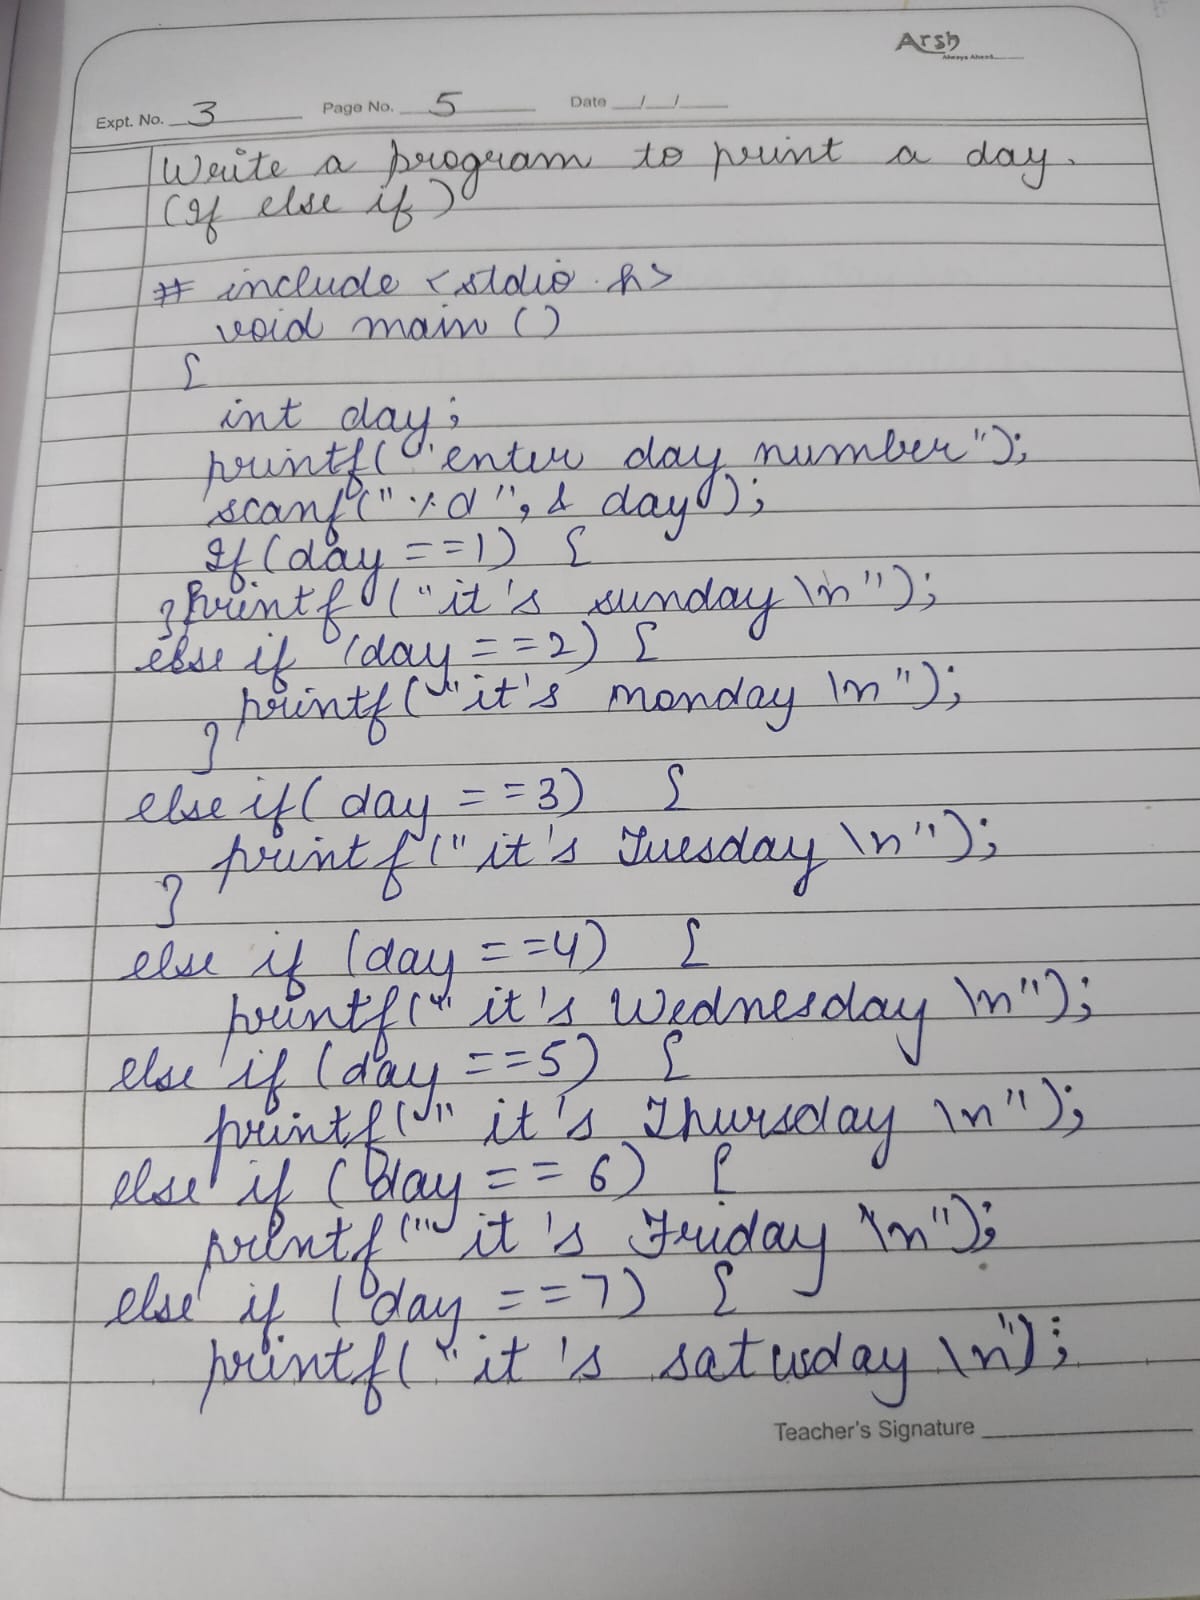 Arsh
Always Ahead
Expt. No. 3 Page No. 5 Date / /
Write a program to print a day.
(If else if)
# include <stdio.h>
void main ()
{
int day;
printf("enter day number");
scanf("%d", & day);
If (day ==1) {
}printf ("it's sunday \n");
else if (day ==2) {
printf("it's monday \n");
}
else if( day ==3) {
printf("it's Tuesday \n");
}
else if (day ==4) {
printf(" it's Wednesday \n");
else if (day ==5) {
printf(" it's Thursday \n");
else if (day == 6) {
printf(" it's Friday \n");
else if ( day ==7) {
printf("it's satusday \n");
Teacher's Signature